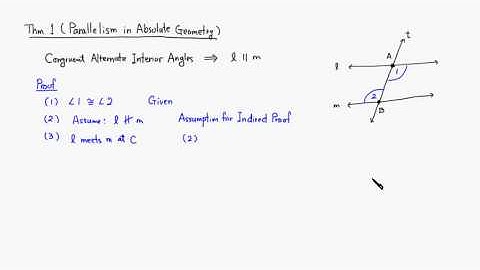 Thm 1 (Parallelism in Absolute Geometry)
Congruent Alternate Interior Angles ⇒ ℓ ∥ m
Proof
(1) ∠1 ≅ ∠2 Given
(2) Assume: ℓ ∦ m Assumption for Indirect Proof
(3) ℓ meets m at C (2)
t
A
ℓ
1
2
m
B